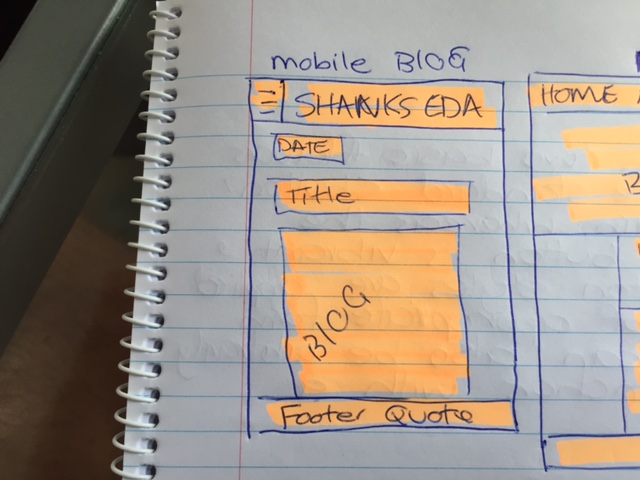 mobile BLOG
SHANKS EDA
DATE
Title
BLOG
Footer Quote
HOME
B